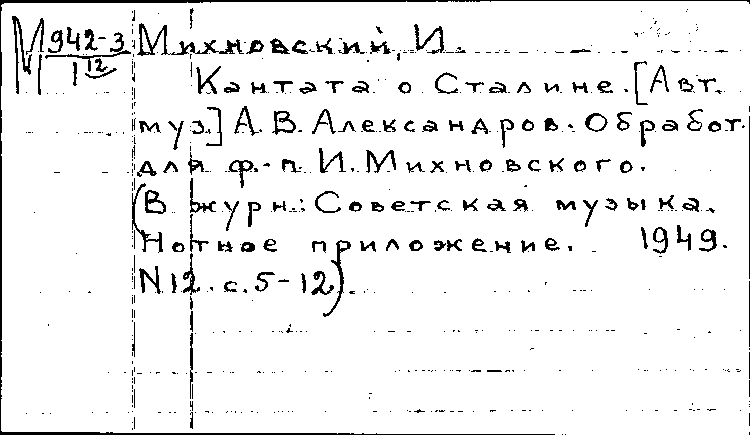 М 942-3 Михновский, И.
1 12
Кантата о Сталине. [Авт.
муз.] А.В. Александров. Обработ.
для ф.-п. И. Михновского.
(В журн.: Советская музыка.
Нотное приложение. 1949.
N12. с. 5-12).